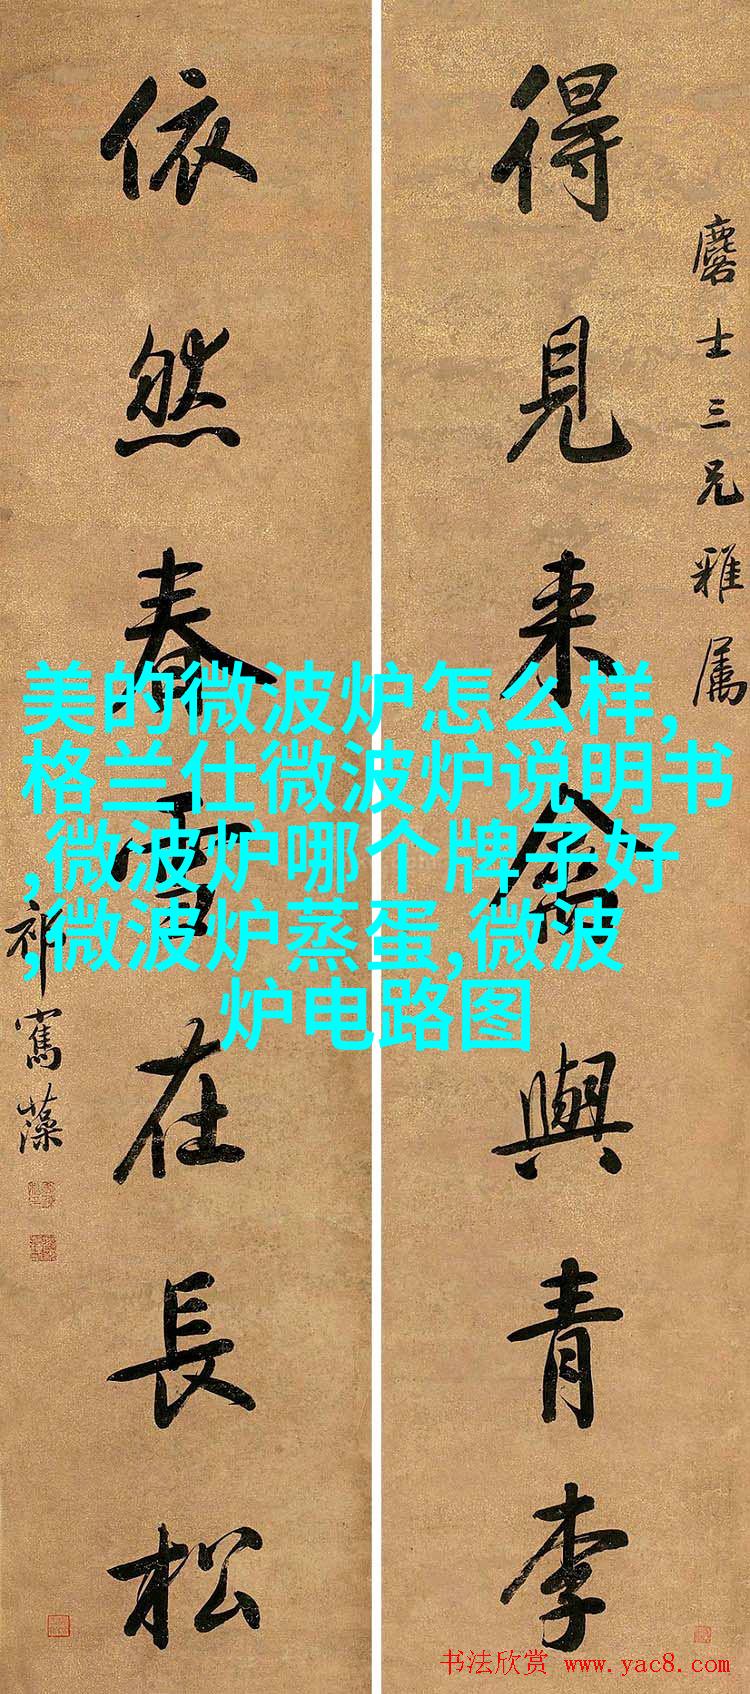 得見來禽與青李
麐士三兄雅属
依然春雪在長松
祁寯藻
美的微波炉怎么样,
格兰仕微波炉说明书
,微波炉哪个牌子好
,微波炉蒸蛋,微波
炉电路图
书法欣赏 www.yac8.com